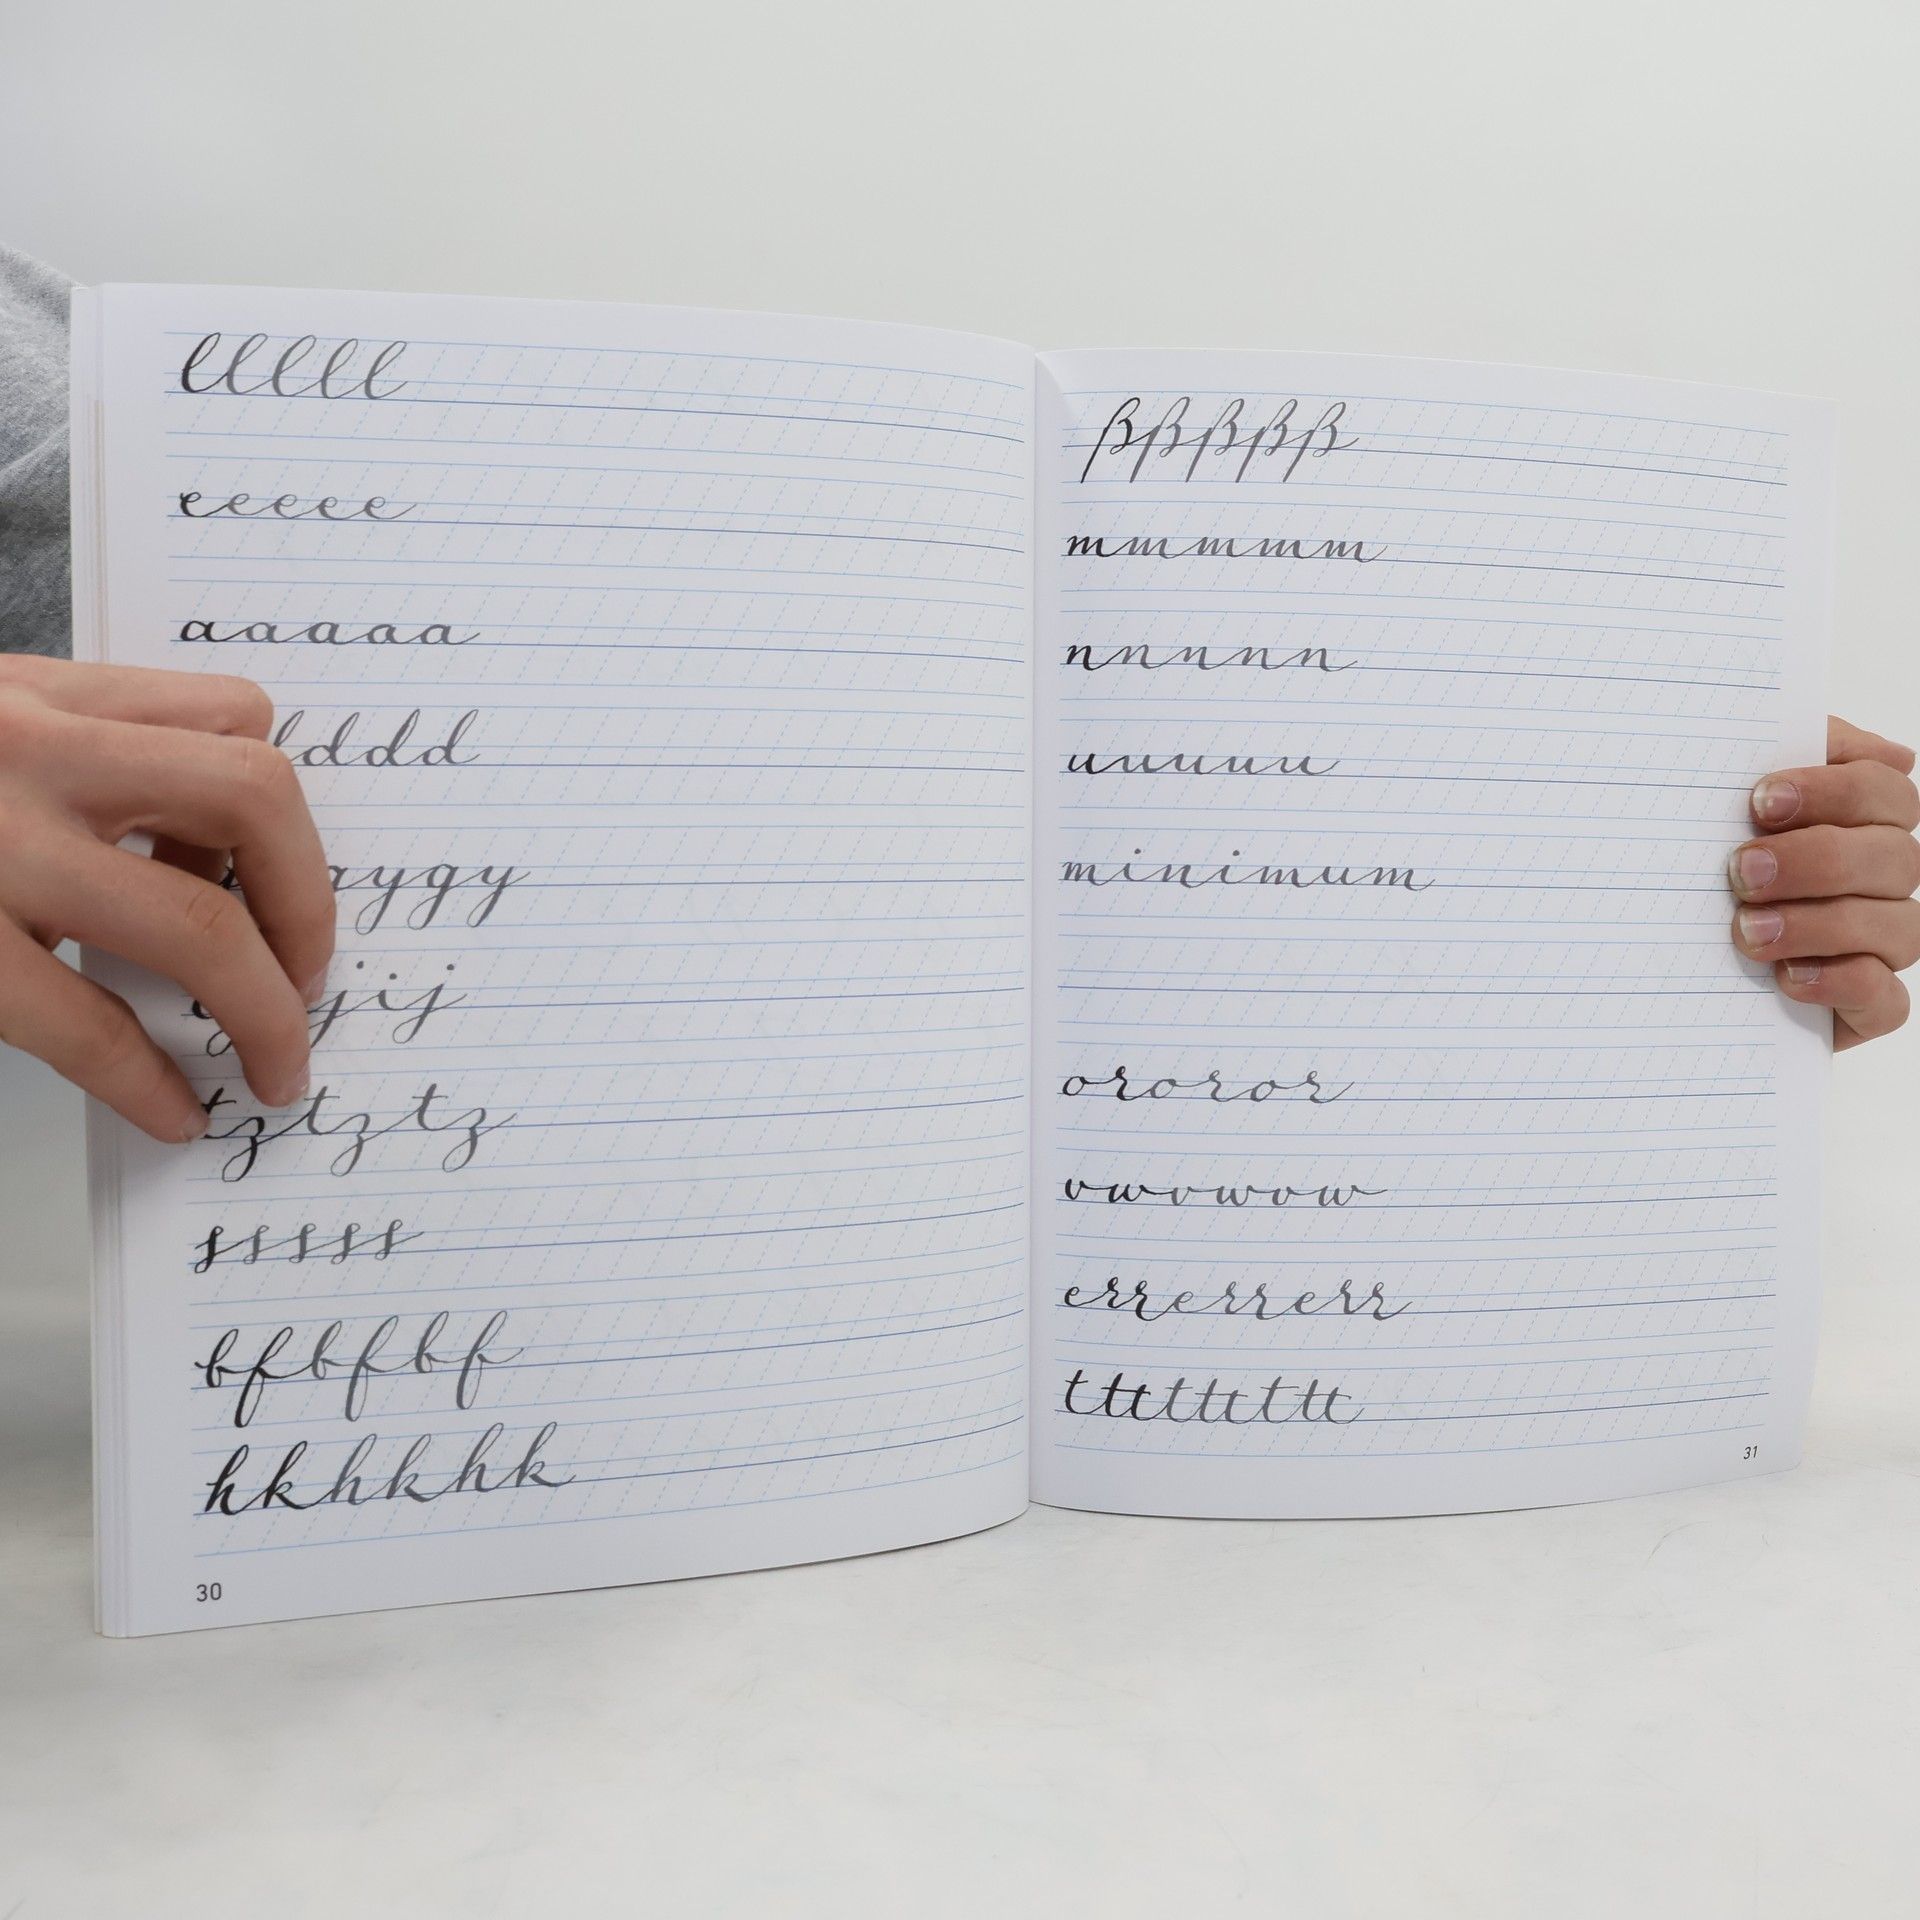 lllll
eeeee
aaaaa
ddd
aygy
jij
tztztz
sssss
bfbfbf
hkhkhk
30
ßßßßß
mmmmm
nnnnn
uuuuu
minimum
ororor
vwvwvw
errerrerr
ttttttttt
31